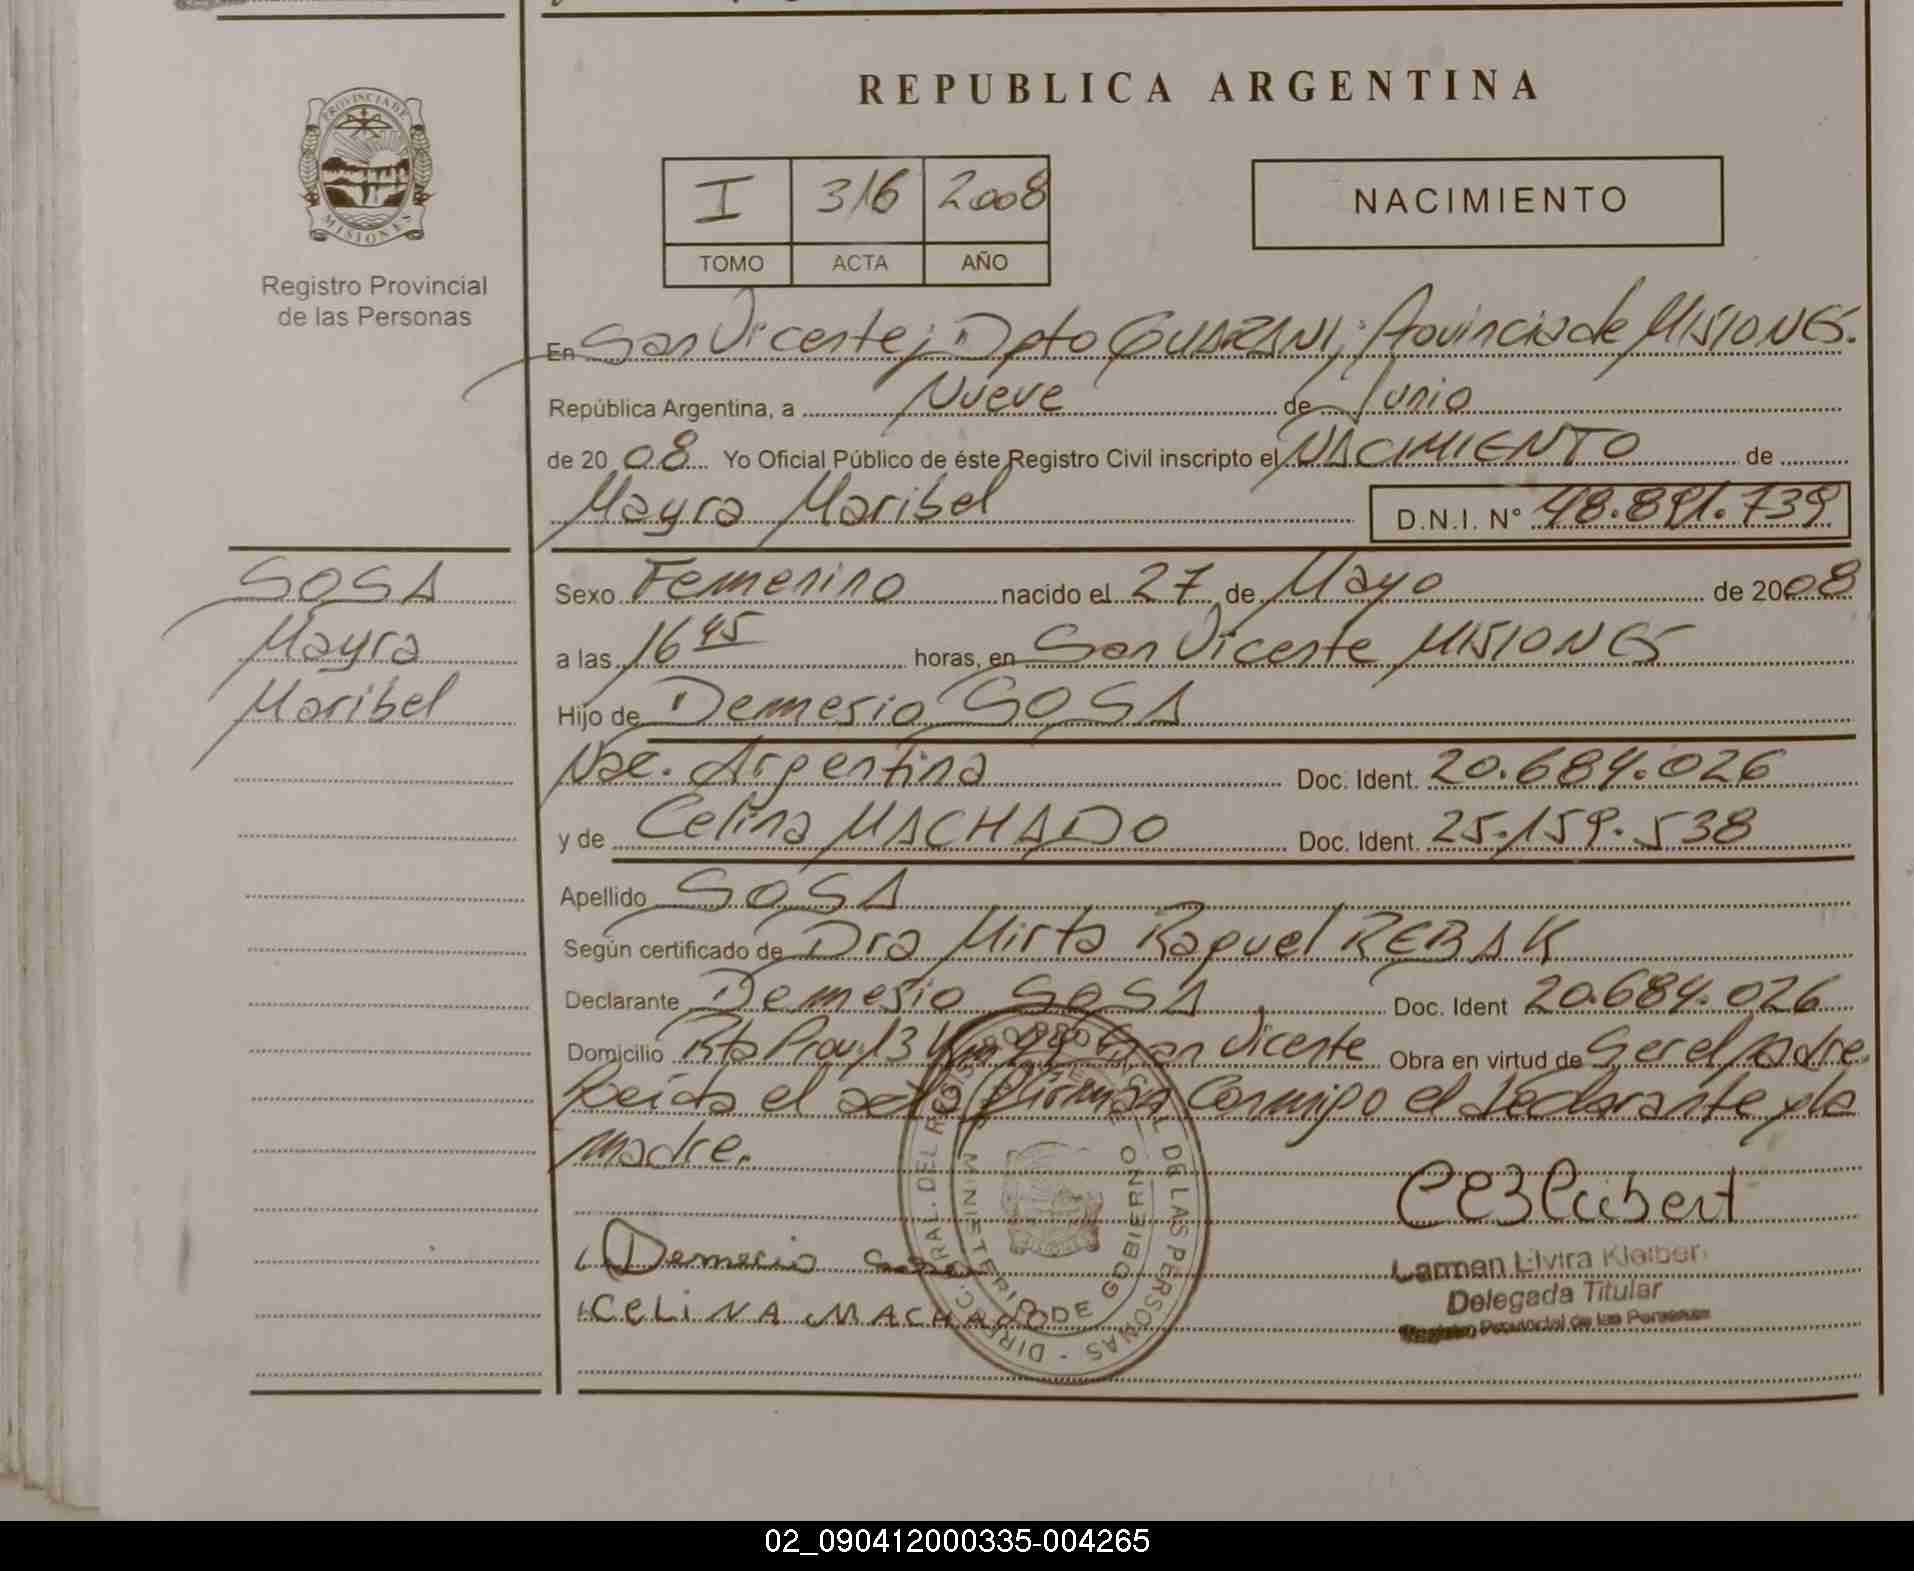 REPUBLICA ARGENTINA
PROVINCIA DE
MISIONES
Registro Provincial
de las Personas
I 316 2008
TOMO ACTA AÑO
NACIMIENTO
En San Vicente; Dpto GUARANI; Provincia de MISIONES.
República Argentina, a Nueve de Junio
de 2008 Yo Oficial Público de éste Registro Civil inscripto el NACIMIENTO de
Mayra Maribel D.N.I. N° 48.891.739
SOSA
Mayra
Maribel
Sexo Femenino nacido el 27 de Mayo de 2008
a las 16 45 horas, en San Vicente MISIONES
Hijo de Demesio SOSA
Nac. Argentina Doc. Ident. 20.684.026
y de Celina MACHADO Doc. Ident. 25.159.538
Apellido SOSA
Según certificado de Dra Mirta Raquel REBAK
Declarante Demesio SOSA Doc. Ident 20.684.026
Domicilio Rta Prov 13 Km San Vicente Obra en virtud de Ser el padre.
Leída el acta firman Conmigo el declarante y la
madre.
Demecio Sosa
CELINA MACHADO
DIREC. GRAL. DEL REGISTRO PROVINCIAL DE LAS PERSONAS -
MINISTERIO DE GOBIERNO
Carmen Elvira Kleibert
Delegada Titular
Registro Provincial de las Personas
02_090412000335-004265